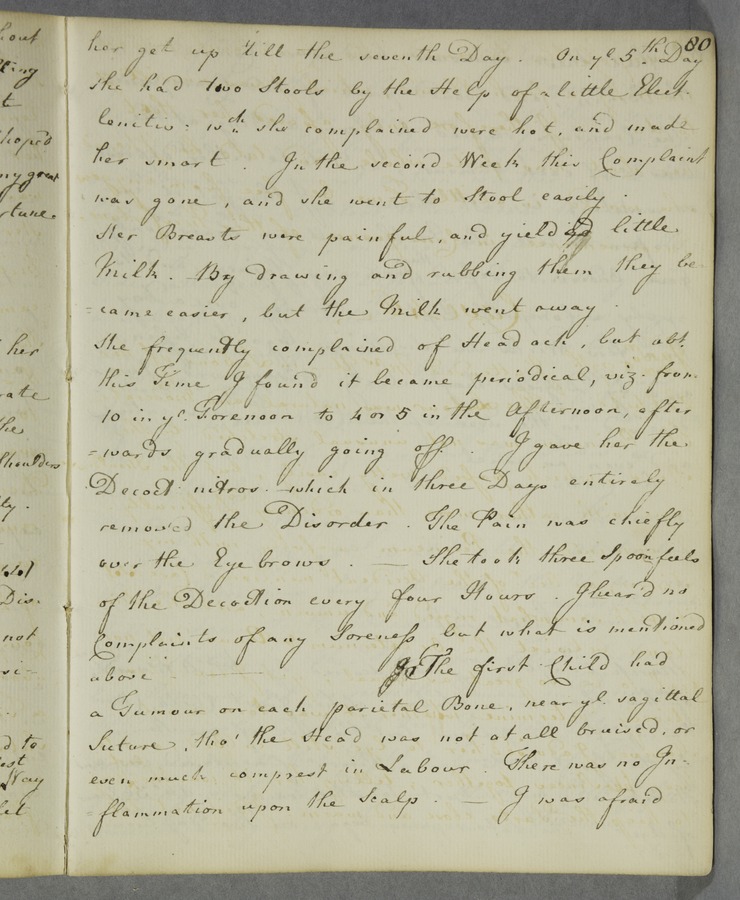 80
her get up 'till the seventh Day. On ye 5.th Day
she had two Stools by the Help of a little Elect.
lenitiv: wch she complained were hot, and made
her smart. In the second Week this Complaint
was gone, and she went to Stool easily.
Her Breasts were painful, and yielded little
Milk. By drawing and rubbing them they be
=came easier, but the Milk went away.
She frequently complained of Headach, but abt.
this Time I found it became periodical, viz. from
10 in ye. Forenoon to 4 or 5 in the Afternoon, after
=wards gradually going off. I gave her the
Decoct nitros. which in three Days entirely
removed the Disorder. The Pain was chiefly
over the Eyebrows. — She took three Spoonfuls
of the Decoction every four Hours. I hear'd no
Complaints of any Soreness but what is mentioned
above — The first Child had
a Tumour on each parietal Bone, near ye. sagittal
Suture, tho' the Head was not at all bruised, or
even much comprest in Labour. There was no In-
flammation upon the Scalp. — I was afraid
hout
t
hoped
my great
rtune.
her
rate
the
Shoulders
ty.
Dis.
not
si-
d to
Way
let